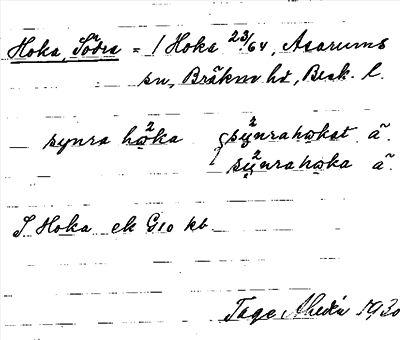 Hoka, Södra = 1 Hoka 23/64, Asarums
sn, Bräkne hd, Blek. l.
synra hơka { sy̆nrahơkat ã.
sy̆nrahơka ã.
S Hoka ek G10 kb.
Tage Ahldén 1930